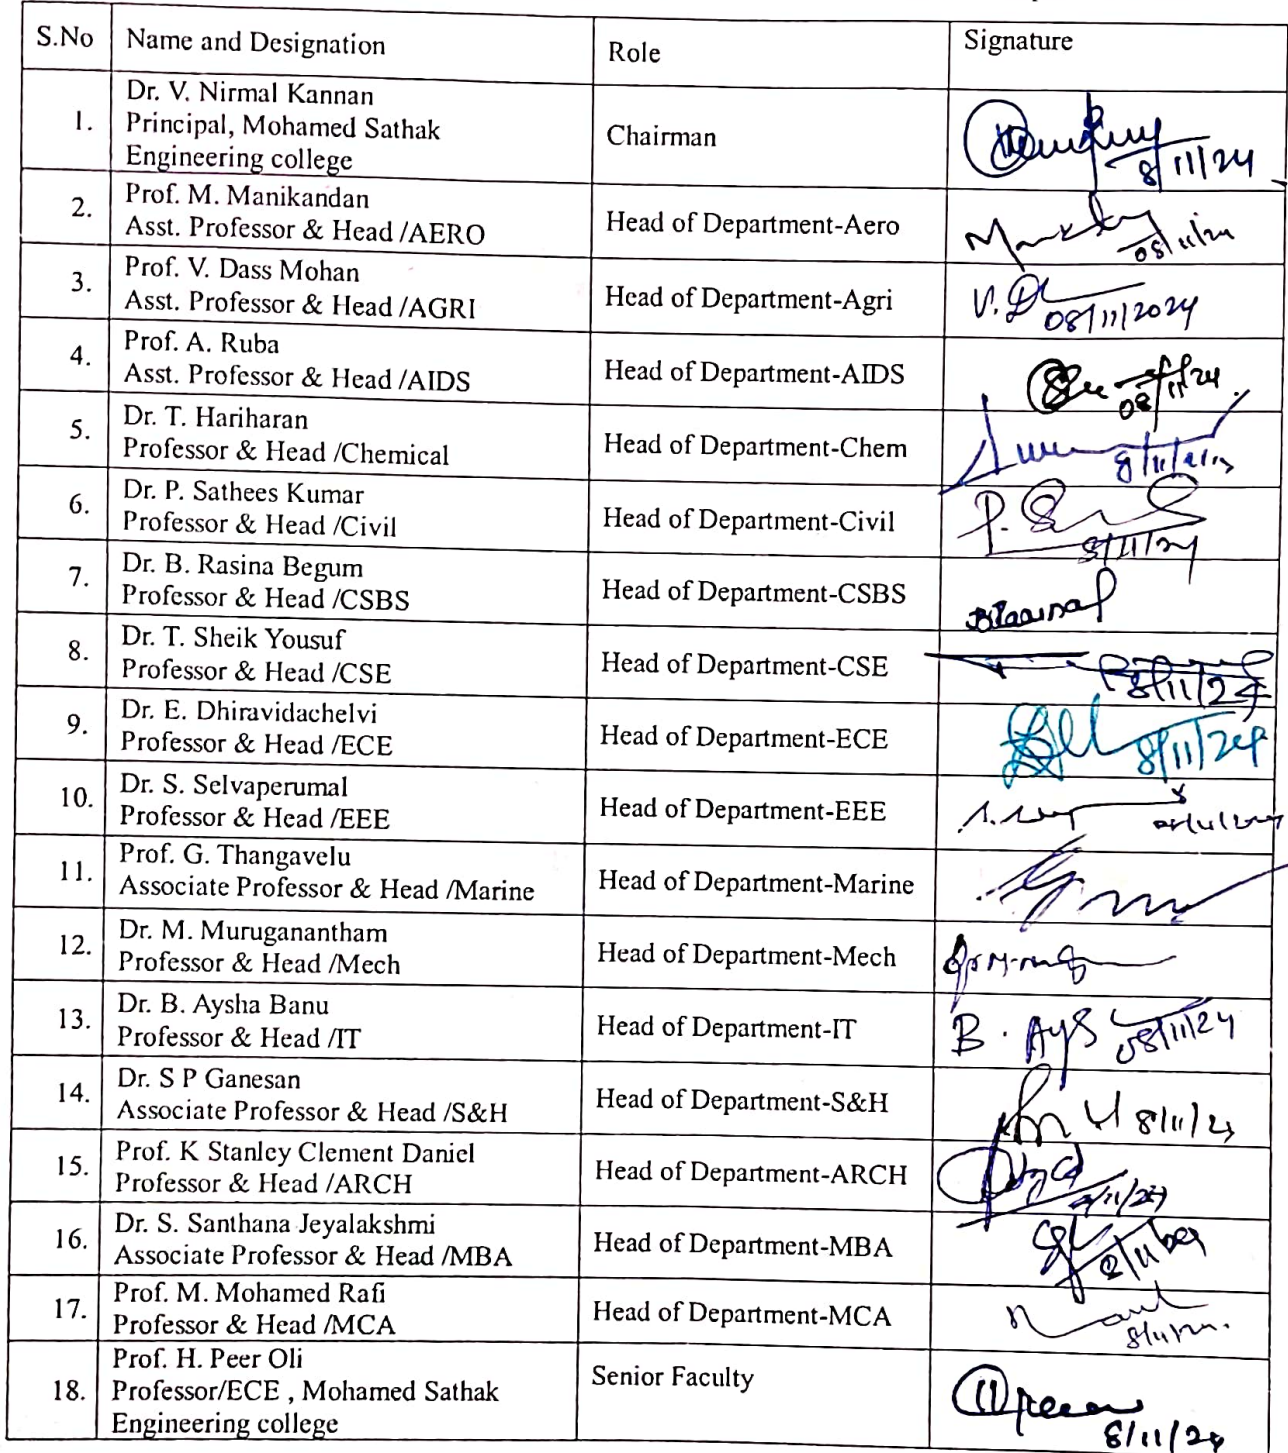 S.No Name and Designation Role Signature
1. Dr. V. Nirmal Kannan
Principal, Mohamed Sathak
Engineering college
Chairman
8/11/24
2. Prof. M. Manikandan
Asst. Professor & Head /AERO
Head of Department-Aero
08/11/24
3. Prof. V. Dass Mohan
Asst. Professor & Head /AGRI
Head of Department-Agri
V.D
08/11/2024
4. Prof. A. Ruba
Asst. Professor & Head /AIDS
Head of Department-AIDS
08/11/24
5. Dr. T. Hariharan
Professor & Head /Chemical
Head of Department-Chem
6. Dr. P. Sathees Kumar
Professor & Head /Civil
Head of Department-Civil
8/11/24
7. Dr. B. Rasina Begum
Professor & Head /CSBS
Head of Department-CSBS
8. Dr. T. Sheik Yousuf
Professor & Head /CSE
Head of Department-CSE
8/11/24
9. Dr. E. Dhiravidachelvi
Professor & Head /ECE
Head of Department-ECE
8/11/24
10. Dr. S. Selvaperumal
Professor & Head /EEE
Head of Department-EEE
11. Prof. G. Thangavelu
Associate Professor & Head /Marine
Head of Department-Marine
12. Dr. M. Muruganantham
Professor & Head /Mech
Head of Department-Mech
13. Dr. B. Aysha Banu
Professor & Head /IT
Head of Department-IT
B. Ays 08/11/24
14. Dr. S P Ganesan
Associate Professor & Head /S&H
Head of Department-S&H
8/11/24
15. Prof. K Stanley Clement Daniel
Professor & Head /ARCH
Head of Department-ARCH
16. Dr. S. Santhana Jeyalakshmi
Associate Professor & Head /MBA
Head of Department-MBA
17. Prof. M. Mohamed Rafi
Professor & Head /MCA
Head of Department-MCA
18. Prof. H. Peer Oli
Professor/ECE , Mohamed Sathak
Engineering college
Senior Faculty
8/11/24